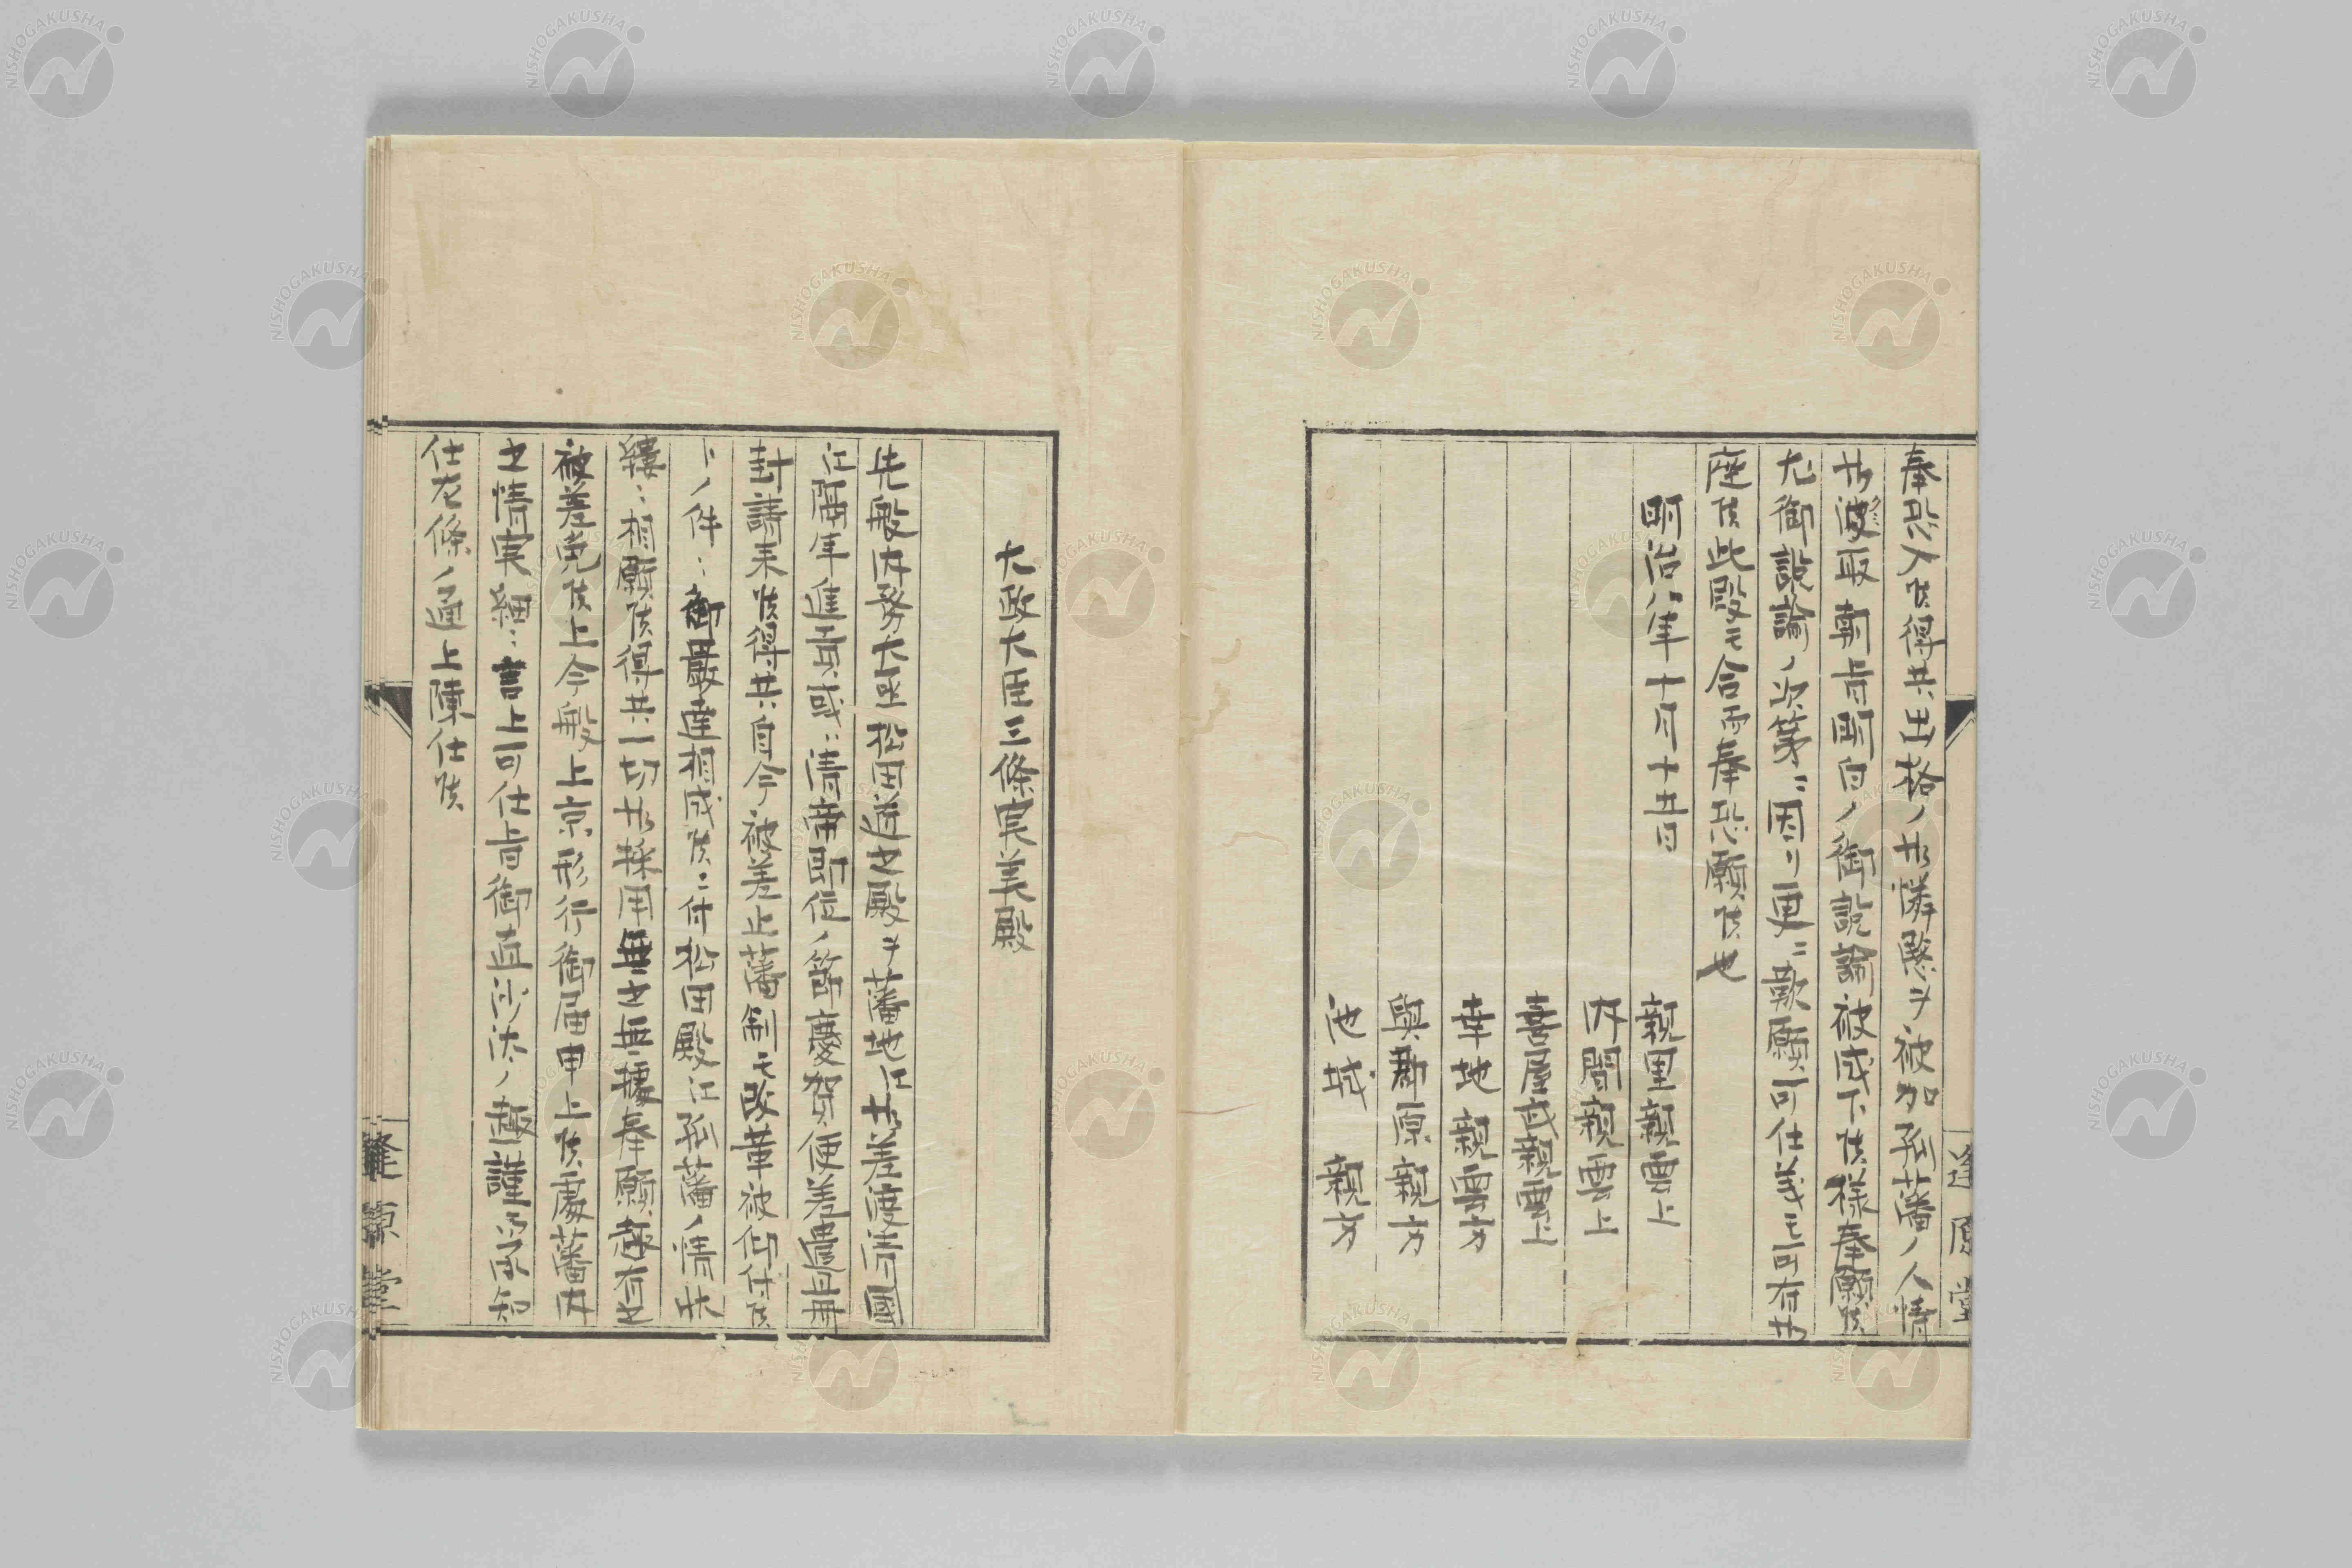 奉恐入候得共出格ノ御憐愍ヲ被加弊藩ノ人情
御汲取朝旨明白ノ御説諭被成下候様奉願候
尤御説諭ノ次第ニ因リ更ニ歎願可仕義モ可有御
座候此段モ合而奉恐願候也
明治八年十月十五日
親里親雲上
内間親雲上
喜屋武親雲上
幸地親雲方
與那原親方
池城親方
大政大臣三條実美殿
先般内務大丞松田道之殿ヲ藩地江御差渡清國
江隔年進貢或ハ清帝即位ノ節慶賀使差遣且冊
封請来候得共自今被差止藩制モ改革被仰付候
トノ件ニ御嚴達相成候ニ付松田殿江弊藩ノ情状
縷々相願候得共一切御採用無之無據奉願趣有之
被差免候上今般上京形行御届申上候處藩内
之情実細々言上可仕旨御直沙汰ノ趣謹而承知
仕左條ノ通上陳仕候
逢原堂
逢原堂
NISHOGAKUSHA